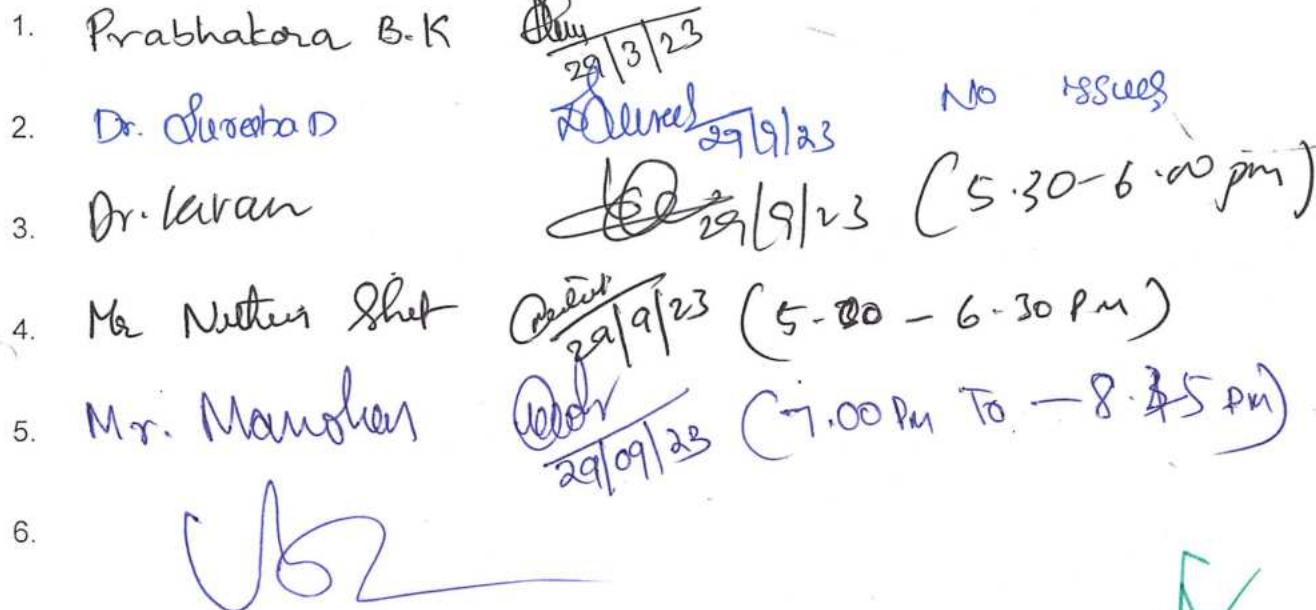 1. Prabhakara B.K 29/3/23
2. Dr. Suresha D 29/9/23 No issues
3. Dr. Karan 29/9/23 (5.30-6.00 pm)
4. Mr Nithin Shet 29/9/23 (5-00 - 6-30 PM)
5. Mr. Manohar 29/09/23 (7.00 PM To - 8.45 PM)
6.